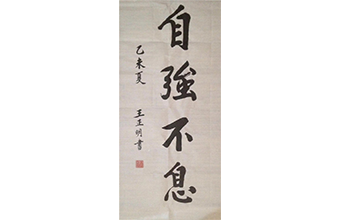 自強不息
乙未夏 王正明書